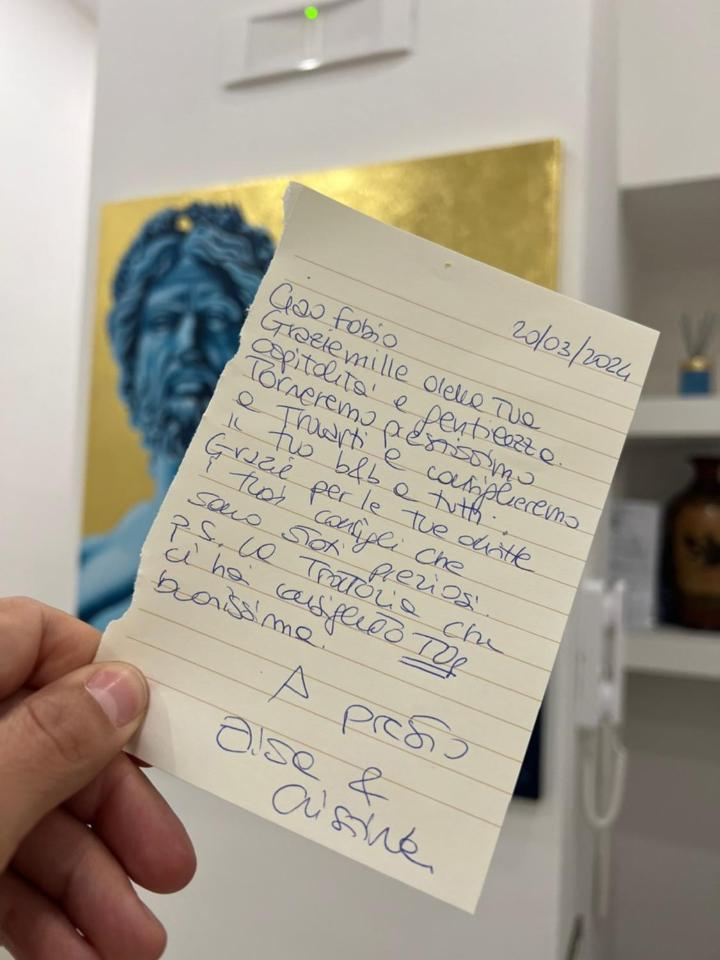 20/03/2024
Ciao Fabio
Grazie mille della Tua
ospitalità e gentilezza.
Torneremo prestissimo
a Trovarti e consiglieremo
il tuo b&b a tutti.
Grazie per le tue dritte
i tuoi consigli che
sono stati preziosi.
P.S. la Trattoria che
ci hai consigliato TOP
buonissima.
A presto
&